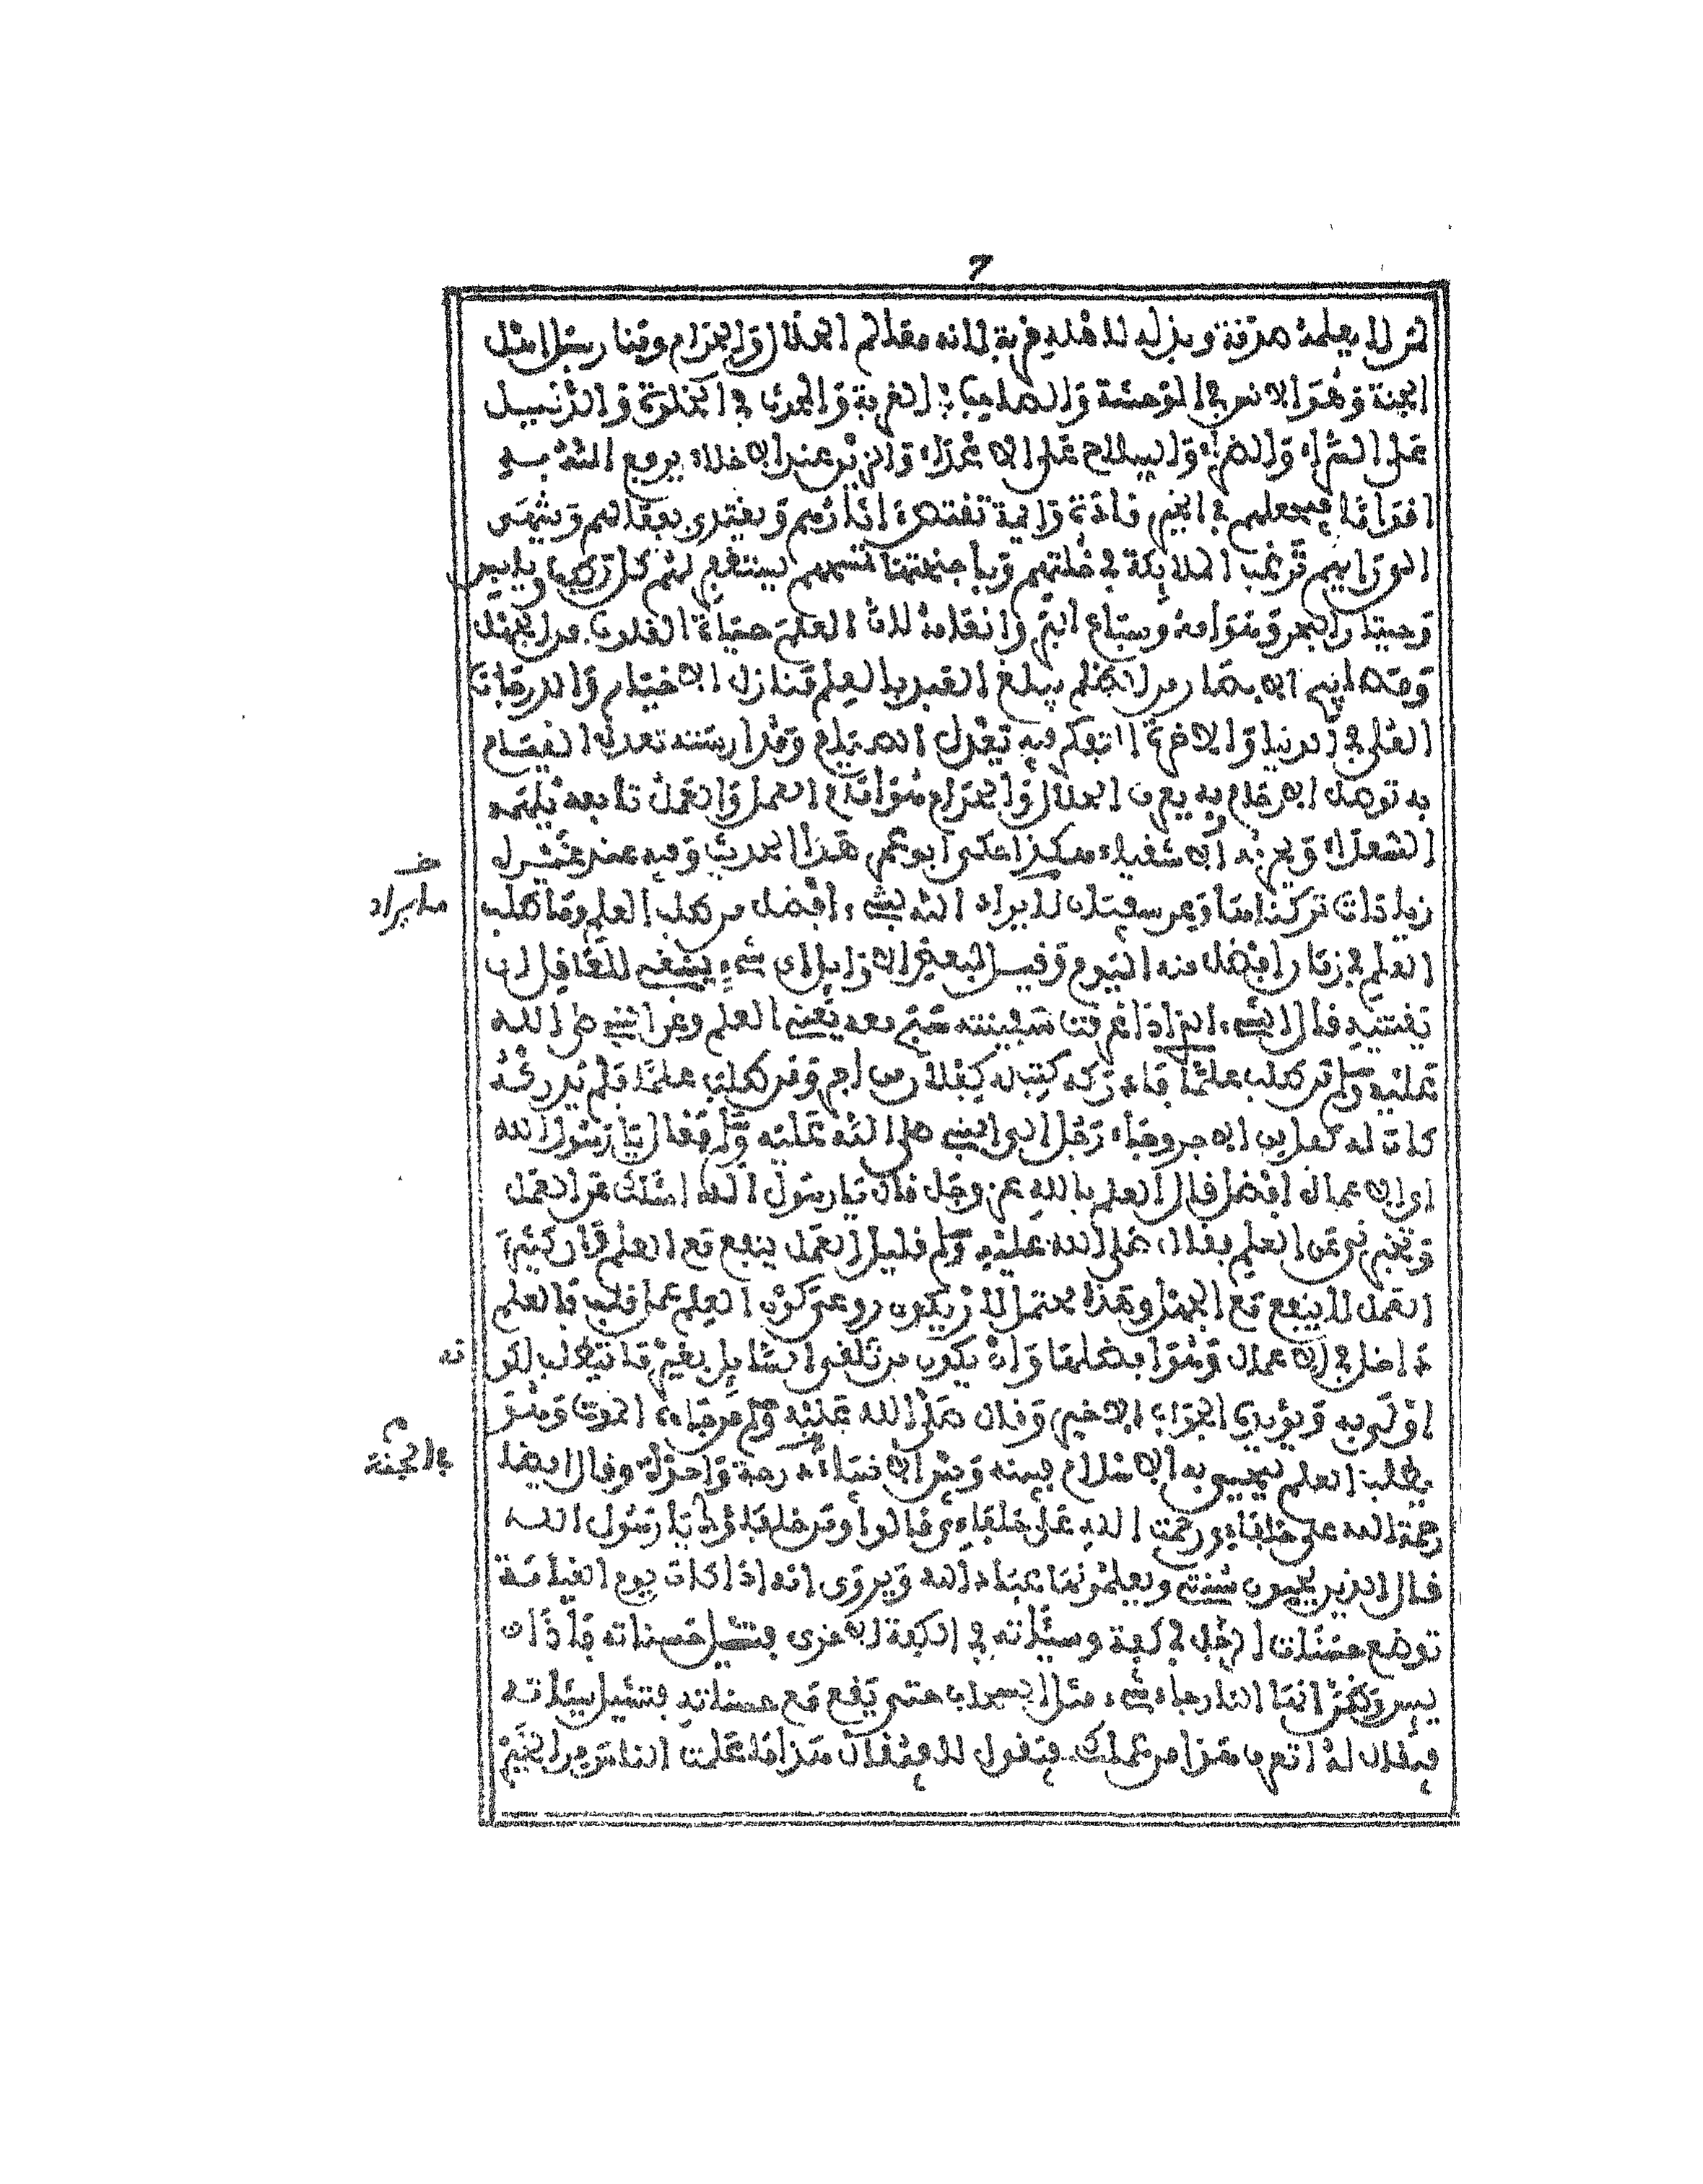 7
لمن لا يعلمه صدقة وبذله لاهله قربة لانه معالم الحلال والحرام ومنار سبل اهل
الجنة وهو الانس في الوحشة والصاحب في الغربة والمحدث في الخلوة والدليل
على السراء والضراء والسلاح على الاعداء والزين عند الاخلاء يرفع الله به
اقواما فيجعلهم في الخير قادة وايمة تقتص اثارهم ويقتدى بفعالهم وينتهى
الى رايهم ترغب الملايكة في خلتهم وباجنحتها تمسحهم يستغفر لهم كل رطب ويابس
وحيتان البحر وهوامه وسباع البر وانعامه لان العلم حياة القلوب من الجهل
ومصابيح الابصار من الظلم يبلغ العبد بالعلم منازل الاخيار والدرجات
العلى في الدنيا والاخرة التفكر فيه يعدل الصيام ومدارسته تعدل القيام
به توصل الارحام وبه يعرف الحلال والحرام هو امام العمل والعمل تابعه يلهمه
السعداء ويحرمه الاشقياء هكذا حكى ابو عمر هذا الحديث وفيه عند غيره
زيادات تركناها وعن سفيان لا يراد الله بشيء افضل من طلب العلم وما طلب
ما يراد
العلم في زمان افضل منه اليوم وقيل لبعض الاوايل اي شيء ينبغي للعاقل ان
يقتنيه قال الشيء الذي اذا غرقت سفينته سبح معه يعني العلم وعن النبي صلى الله
عليه وسلم من طلب علما فادركه كتب له كفلان من اجر ومن طلب علما فلم يدركه
كان له كفل من اجر وجاء رجل الى النبي صلى الله عليه وسلم فقال يا رسول الله
اي الاعمال افضل قال العلم بالله عز وجل قال يا رسول الله اسئلك عن العمل
وتخبرني عن العلم فقال صلى الله عليه وسلم قليل العمل ينفع مع العلم وان كثير
العمل لا ينفع مع الجهل وهذا يحتمل لان يكون روعي كون العلم عمل قلب فالعلم
داخل في الاعمال وهو افضلها وان يكون من تلقي السايل بغير ما يتطلب لكونه
اولى به ويؤيده الجواب الاخير وقال صلى الله عليه وسلم من جاءه الموت وهو
يطلب العلم ليحيي به الاسلام فبينه وبين الانبياء درجة واحدة وقال ايضا
في الجنة
رحمة الله على خلفاءي ورحمت الله على خلفاءي قالوا ومن خلفاؤك يا رسول الله
قال الذين يحيون سنتي ويعلمونها عباد الله ويروى انه اذا كان يوم القيامة
توضع حسنات الرجل في كفة وسيئاته في الكفة الاخرى فتشيل حسناته فاذا
يبس وظن انها النار جاء شيء مثل السحاب حتى يقع مع حسناته فتشيل سيئاته
فيقال له اتعرف هذا من عملك فيقول لا فيقال هذا ما علمت الناس من الخير